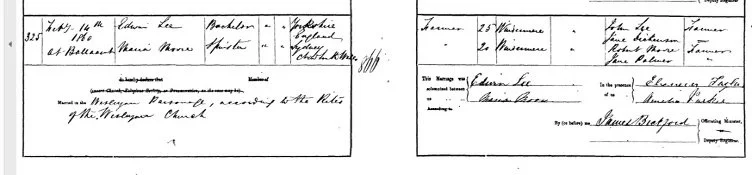 Deputy Registrar.
325 Feby 14th Edwin Lee Bachelor " " Yorkshire
1860 England
at Ballaarat Maria Moore Spinster " " Sydney
866
do hereby declare that Member of
Married in the Wesleyan Parsonage, according to the Rites
of the Wesleyan Church
Farmer 25 Windermere " John Lee Farmer
Jane Dickenson
" 20 Windermere " Robert Moore Farmer
Jane Palmer "
This Marriage was Edwin Lee In the presence Ebenezer
solemnized between
us Maria Moore of us Amelia
According to
By (or before) me James Bickford Officiating Minister,
Deputy Registrar.